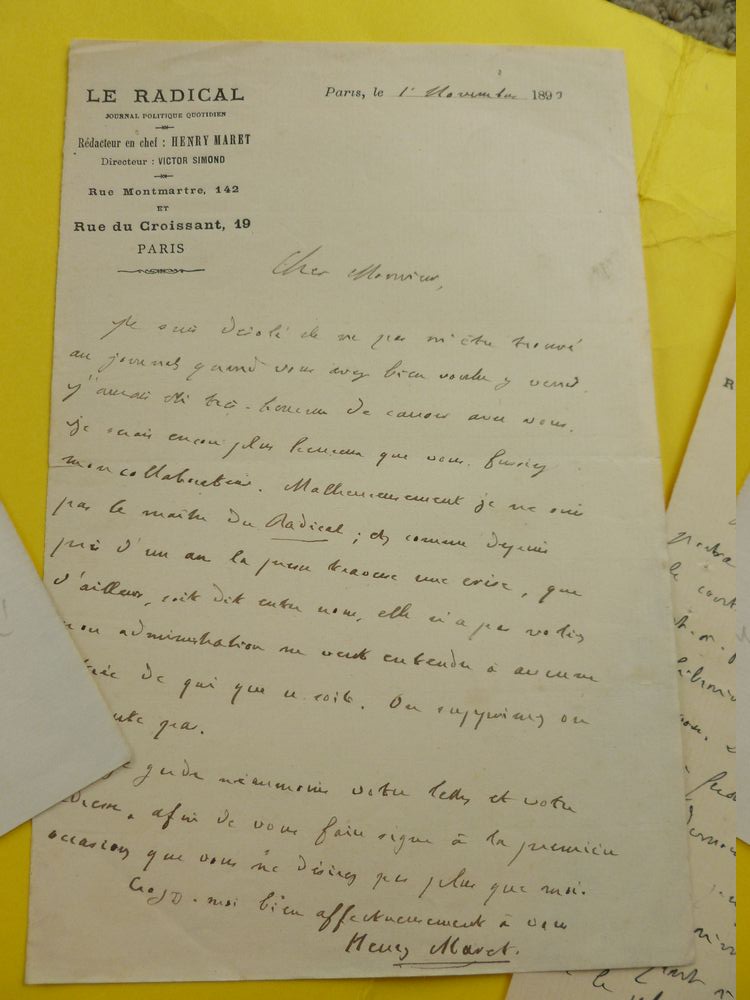 LE RADICAL
JOURNAL POLITIQUE QUOTIDIEN
Rédacteur en chef : HENRY MARET
Directeur : VICTOR SIMOND
Rue Montmartre, 142
ET
Rue du Croissant, 19
PARIS
Paris, le 1er Novembre 189
Cher Monsieur,
Je suis désolé de ne pas m'être trouvé
au journal quand vous avez bien voulu y venir.
J'aurais été très-heureux de causer avec vous.
Je serais encore plus heureux que vous fussiez
mon collaborateur. Malheureusement je ne suis
pas le maître du Radical ; et comme depuis
près d'un an la presse traverse une crise, que
d'ailleurs, soit dit entre nous, elle n'a pas volée,
mon administration ne veut entendre à aucune
de qui que ce soit. On supprime, on
pas.
Je garde néanmoins votre lettre et votre
adresse, afin de vous faire signe à la première
occasion que vous ne désirez pas plus que moi.
Croyez-moi bien affectueusement à vous
Henry Maret.